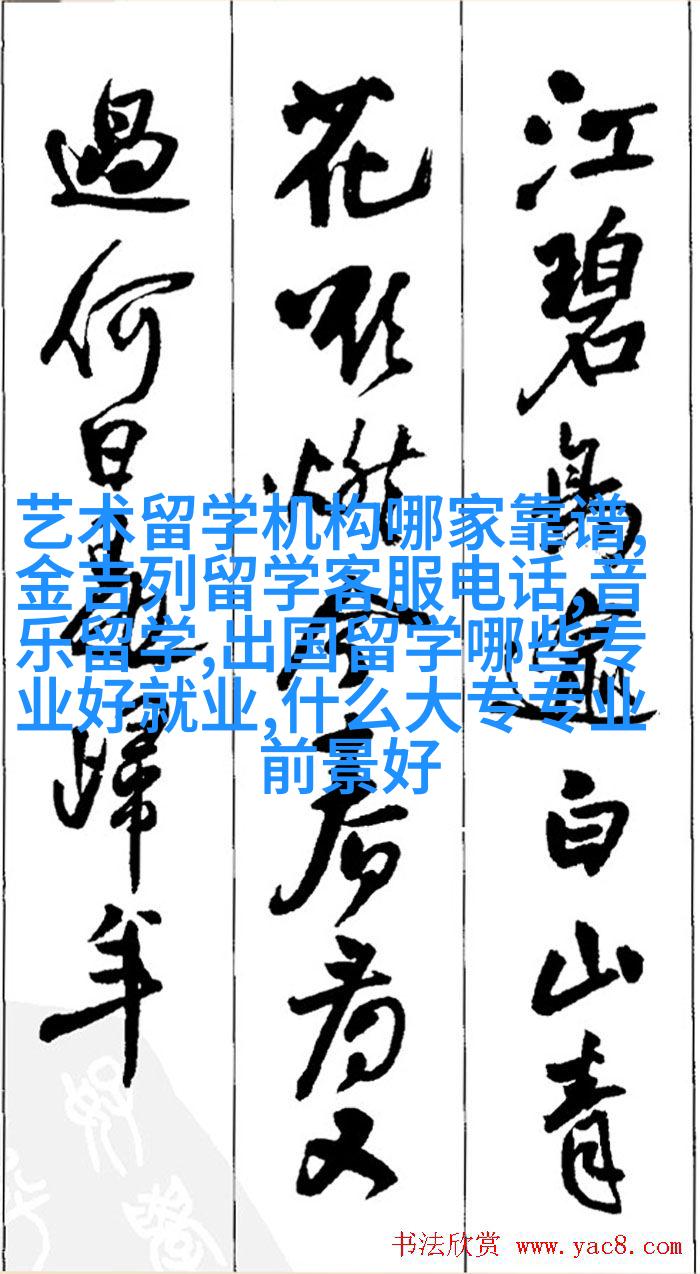 江碧鳥逾白山青
花欲燃今春看又
過何日是歸年
艺术留学机构哪家靠谱,
金吉列留学客服电话,音
乐留学,出国留学哪些专
业好就业,什么大专专业
前景好
书法欣赏 www.yac8.com